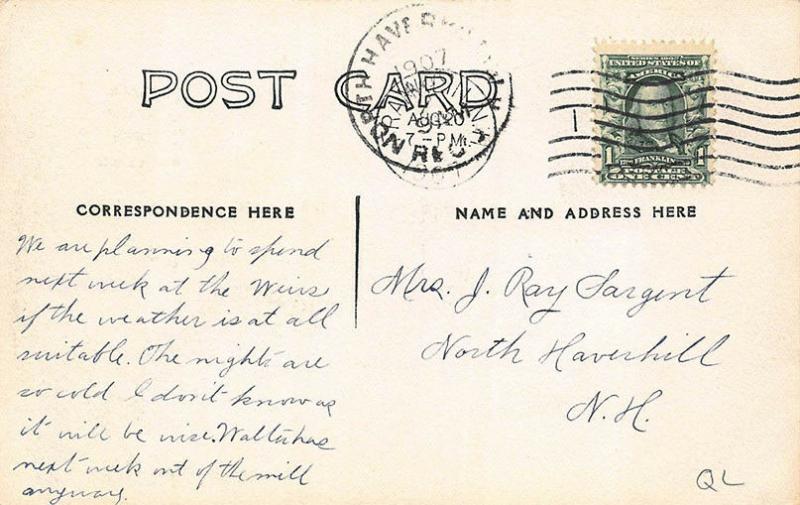 POST CARD
NORTH HAVERHILL
1907
AUG 20
7-PM
REC'D
SERIES 1902
UNITED STATES OF
AMERICA
1 FRANKLIN 1
POSTAGE
ONE CENT
CORRESPONDENCE HERE
NAME AND ADDRESS HERE
We are planning to spend
next week at the Weirs
if the weather is at all
suitable. The nights are
so cold I don't know as
it will be wise. Walter has
next week out of the mill
anyway.
Mrs. J. Ray Sargent
North Haverhill
N.H.
QL